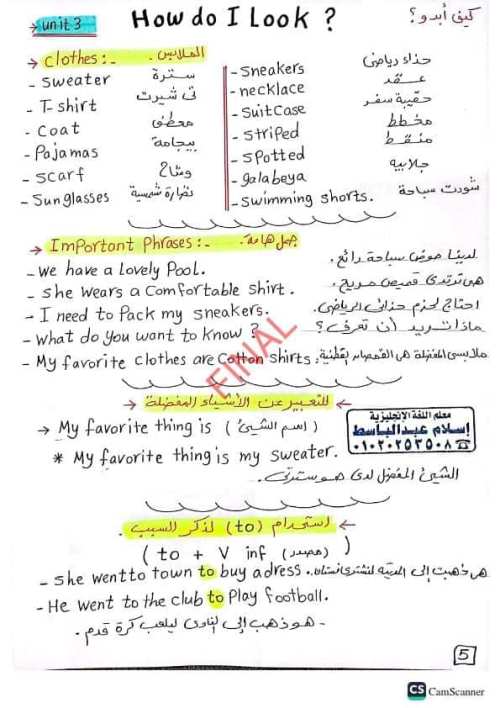 → unit 3 How do I Look ? كيف أبدو؟
→ Clothes:- الملابس.
- Sweater سترة
- T-shirt تى شيرت
- Coat معطف
- Pajamas بيجامة
- Scarf وشاح
- Sunglasses نظارة شمسية
- Sneakers حذاء رياضى
- necklace عقد
- Suitcase حقيبة سفر
- Striped مخطط
- Spotted منقط
- galabeya جلابيه
- Swimming shorts. شورت سباحة
→ Important Phrases:- جمل هامة.
- We have a Lovely Pool. لدينا حوض سباحة رائع.
- She wears a Comfortable shirt. هى ترتدى قميص مريح.
- I need to Pack my sneakers. احتاج لحزم حذائى الرياضى.
- What do you want to know ? ماذا تريد أن تعرف؟
- My favorite clothes are Cotton shirts. ملابسى المفضلة هى القمصان القطنية.
FINAL
← للتعبير عن الأشياء المفضلة →
→ My favorite thing is ( اسم الشئ )
* My favorite thing is my sweater.
الشئ المفضل لدى هو سترتى.
معلم اللغة الإنجليزية
إسلام عبدالباسط
٠١٠٢٠٢٥٢٥٠٨
← استخدام (to) لذكر السبب.
( to + V inf (مصدر) )
- She went to town to buy a dress. هى ذهبت إلى المدينة لتشترى فستان.
- He went to the club to Play football.
- هو ذهب إلى النادى ليلعب كرة قدم.
5
CS CamScanner